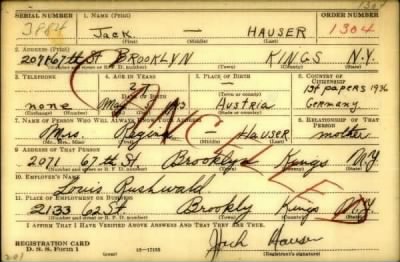 SERIAL NUMBER 1. NAME (Print) ORDER NUMBER
3884 Jack — HAUSER 1304
(First) (Middle) (Last)
2. ADDRESS (Print)
2071 67th St BROOKLYN KINGS N.Y.
(Number and street or R. F. D. number) (Town) (County) (State)
3. TELEPHONE 4. AGE IN YEARS 5. PLACE OF BIRTH 6. COUNTRY OF CITIZENSHIP
27 1st papers 1936
none May Austria Germany
7. NAME OF PERSON WHO WILL ALWAYS KNOW YOUR ADDRESS 8. RELATIONSHIP OF THAT PERSON
Mrs. Regina — HAUSER mother
(Mr., Mrs., Miss) (First) (Middle) (Last)
9. ADDRESS OF THAT PERSON
2071 67th St. Brooklyn Kings N.Y.
(Number and street or R. F. D. number) (Town) (County) (State)
10. EMPLOYER'S NAME
Louis Rushwald
11. PLACE OF EMPLOYMENT OR BUSINESS
2133 62 St Brookly Kings N.Y.
(Number and street or R. F. D. number) (Town) (County) (State)
I AFFIRM THAT I HAVE VERIFIED ABOVE ANSWERS AND THAT THEY ARE TRUE.
REGISTRATION CARD
D. S. S. Form 1 Jack Hauser
(Registrant's signature)
CANCELLED